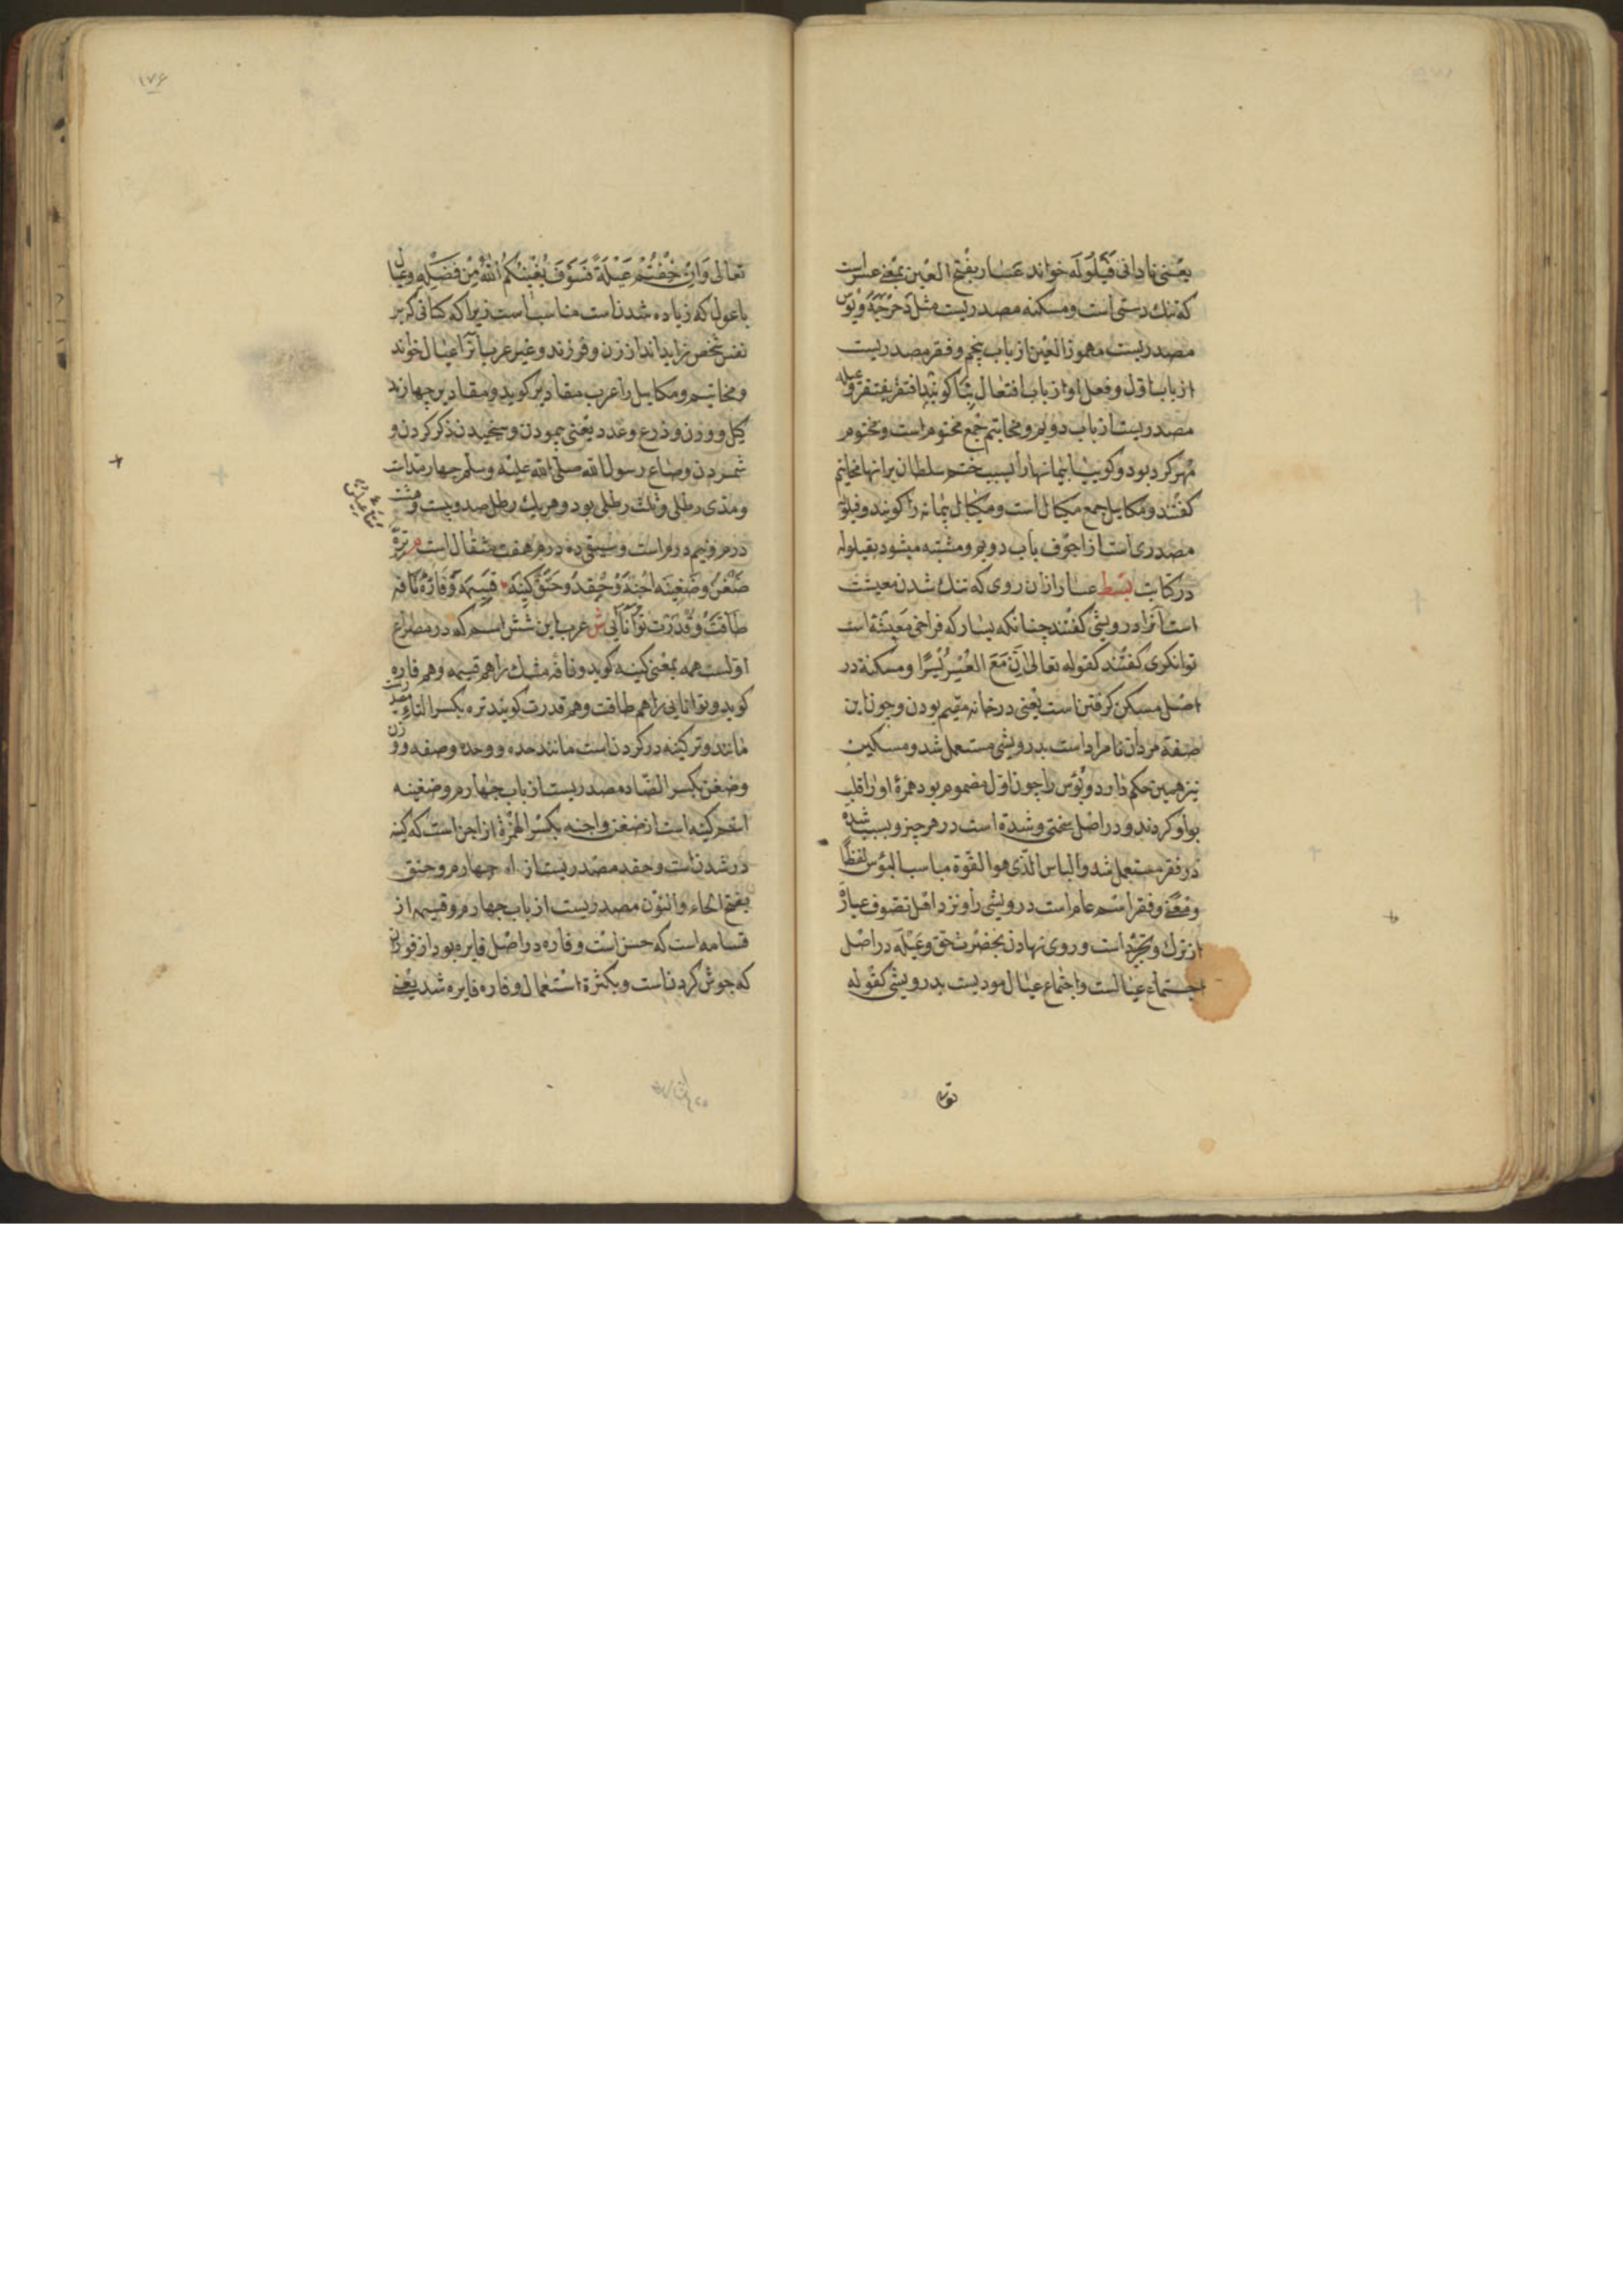 یعنی نادانی قَیْلُولَه خواند عَسَار بفتح العین بمعنی عسرست
که تنک دستی است ومسکنه مصدریست مثل دَحْرَجَةً وبؤس
مصدریست مهموز العین از باب پنجم وفقر مصدریست
از باب اول وفعل او از باب افتعال کویند افتقر یفتقر وعیله
مصدریست از باب دویم ومخاتیم جمع مختوم است ومختوم
مهر کرده بود وکوییا پیمانهارا بسبب ختم سلطان برانها مخاتیم
کفتند ومکاییل جمع مکیال است ومکیال پیمانه را کویند وقیلوله
مصدری است از اجوف باب دویم ومشتبه میشود بقیلوله
در کتابت بسط عسار از ان روی که تنک شدن معیشت
است آنرا درویشی کفتند چنانکه یسار که فراخی معیشة است
توانکری کفتند کقوله تعالی اِنَّ مَعَ الْعُسْرِ یُسْرًا ومسکنة در
اصل مسکن کرفتن است یعنی در خانه مقیم بودن وچون این
صفة مردان نامراد است بدرویشی مستعمل شد ومسکین
نیز همین حکم دارد وبؤس را چون اول مضموم بود همزهٔ اورا قلب
بواو کردند ودر اصل سختی وشدة است در هر چیز وبسبب شدة
در فقر مستعمل شد والباس الذی هو القوة مناسب البؤس لفظًا
ومعنی وفقر اسم عام است درویشی را ونزد اهل تصوف عبارة
از ترک وتجرّد است وروی نهادن بحضرت حق وعَیْلَه در اصل
اجتماع عیالست واجتماع عیال مودیست بدرویشی کقوله
تعالی وَاِنْ خِفْتُمْ عَیْلَةً فَسَوْفَ یُغْنِیْکُمُ اللّٰهُ مِنْ فَضْلِهِ وعیال
با عول که زیاده شدن است مناسب است زیرا که کسانی که بر
نفس شخص زایداند از زن وفرزند وغیر عرب آنرا عیال خواند
ومخاتیم ومکاییل را عرب مقادیر کوید ومقادیر چهارند
کیل ووزن وذرع وعدد یعنی پیمودن وسنجیدن وکز کردن و
شمردن وصاع رسول الله صلی الله علیه وسلم چهار مدّ است
ومدّی رطلی وثلث رطلی بود وهر یک رطل صد وبیست وهشت
درم ونیم درم است وسبقی ده درم هفت مثقال است م تِرَةٌ
ضِغْن وضَغِیْنَه اِحْنَةٌ وَحِقْد وحَنَق کینَه قَسِیْمَه وَفَارَهٔ نافه
طاقَتْ وَقُدْرَت تَوَانَایی ش عرب این شش اسم که در مصراع
اولست همه بمعنی کینه کوید ونافه مشک را هم قسیمه وهم فاره
کوید وتوانایی را هم طاقت وهم قدرت کویند تره بکسر التاء مصدریست
مانند وتر کینه در کردن است مانند حده ووحد وصفه ووزن
وضغن بکسر الضاد مصدریست از باب چهارم وضغینه
اسم کینه است از ضغن واحنه بکسر الهمزة از احن است که کینه
در شدن است وحقد مصدریست از باب چهارم وحنق
بفتح الحاء والنون مصدریست از باب چهارم وقسیمه از
قسامه است که حسن است وفاره در اصل فایره بود از فوران
که جوش کردن است وبکثرة استعمال وفاره فایره شد یعنی
تعالی
۱۷۶